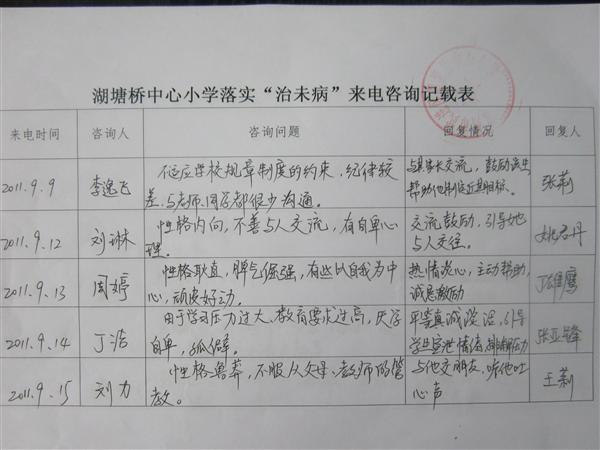 湖塘桥中心小学落实“治未病”来电咨询记载表
来电时间 咨询人 咨询问题 回复情况 回复人
2011.9.9 李逸飞 不适应学校规章制度的约束，纪律较 与其家长交流，鼓励学生 张莉
差.与老师.同学都很少沟通。 帮助他制定近期目标。
2011.9.12 刘琳 性格内向，不善与人交流，有自卑心 交流鼓励，引导她
理。 与人交往。
2011.9.13 周婷 性格耿直，脾气倔强，有些以自我为中 热情关心，主动帮助，
心，顽皮好动。 诚恳激励
2011.9.14 丁洁 由于学习压力过大、教育要求过高，厌学 平等真诚谈话，引导 张亚锋
自卑，孤僻。 学生宣泄情绪，排解压力
2011.9.15 刘力 性格鲁莽，不服从父母、教师的管 与他交朋友，听他吐 王莉
教。 心声